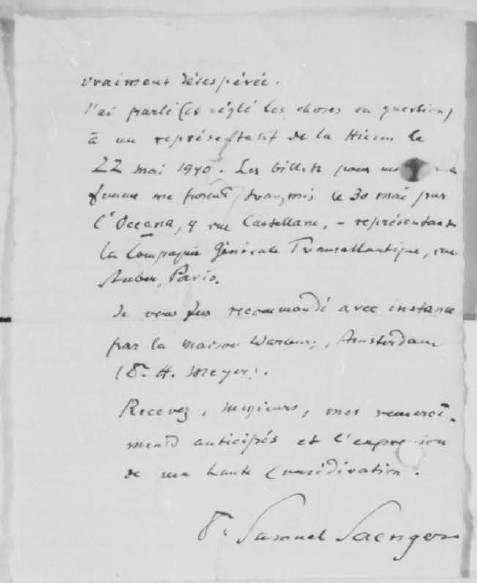 vraiment désespérée.
J'ai parlé (et réglé les choses en question)
à un représentatif de la Hicem le
22 mai 1940. Les billets pour
femme me furent transmis le 30 mai par
l'Oceana, 4 rue Castellane, – représentant
la Compagnie Générale Transatlantique, rue
Auber, Paris.
Je vous fus recommandé avec instance
par la maison Warburg, Amsterdam
(Dr. H. Meyer).
Recevez, Messieurs, mes remercî-
ments anticipés et l'expression
de ma haute considération.
Dr. Samuel Saenger